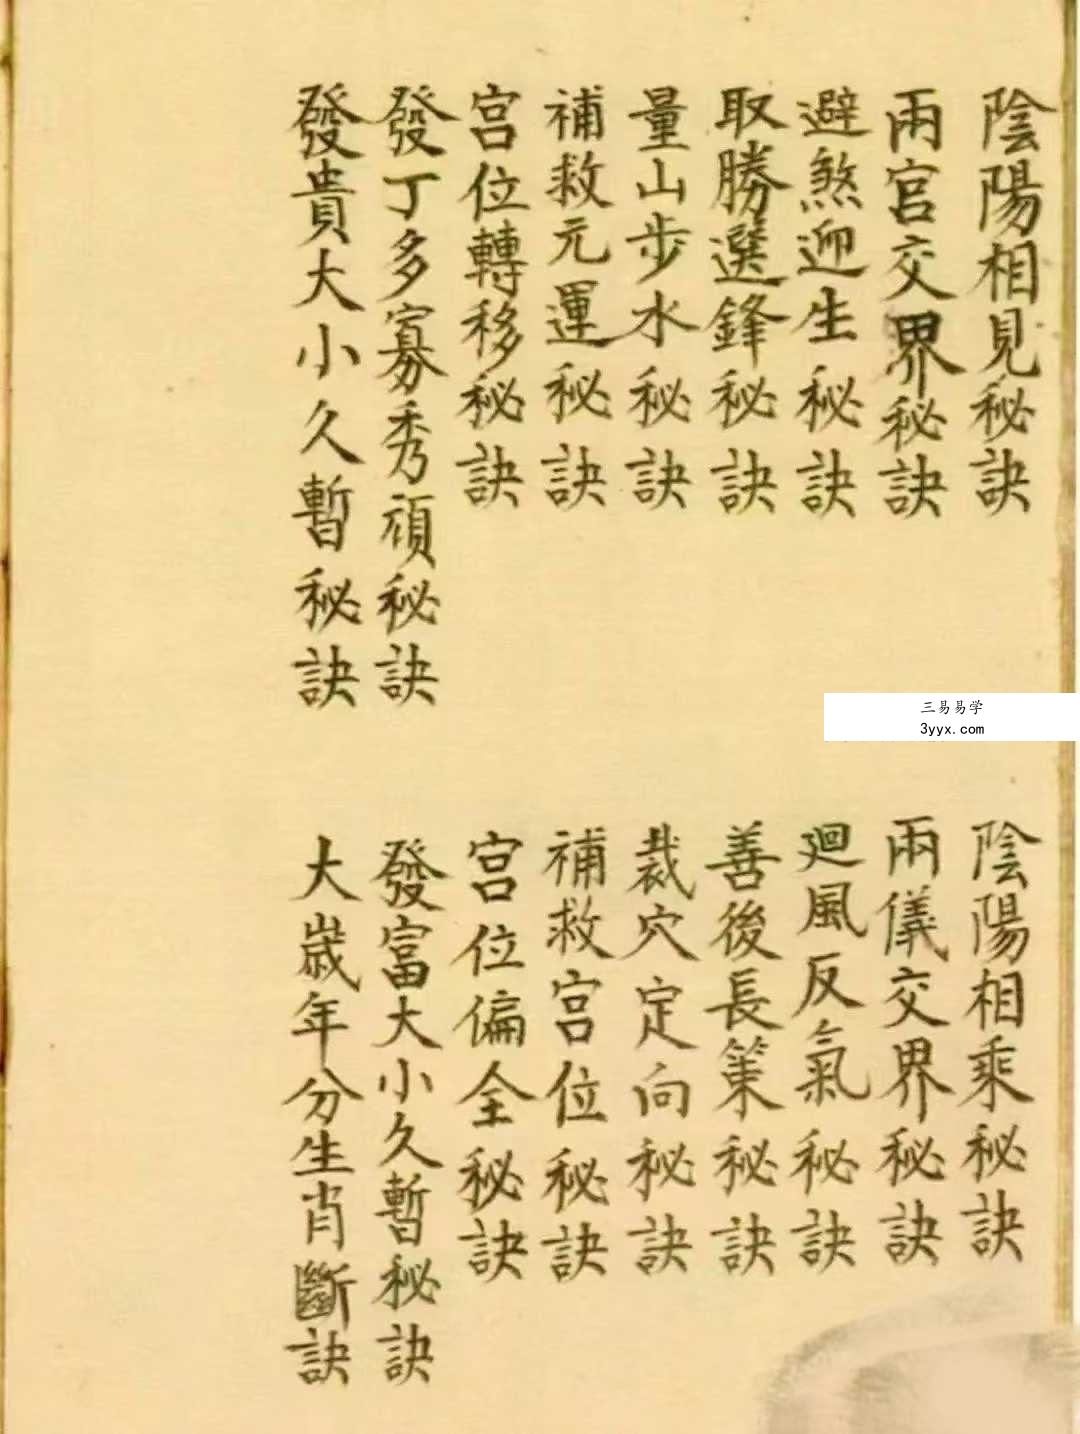 陰陽相見秘訣
陰陽相乘秘訣
兩宮交界秘訣
兩儀交界秘訣
避煞迎生秘訣
廻風反氣秘訣
取勝選鋒秘訣
善後長策秘訣
量山步水秘訣
裁穴定向秘訣
補救元運秘訣
補救宮位秘訣
宮位轉移秘訣
宮位偏全秘訣
發丁多寡秀頑秘訣
發富大小久暫秘訣
發貴大小久暫秘訣
大歲年分生肖斷訣
三易易学
3yyx.com